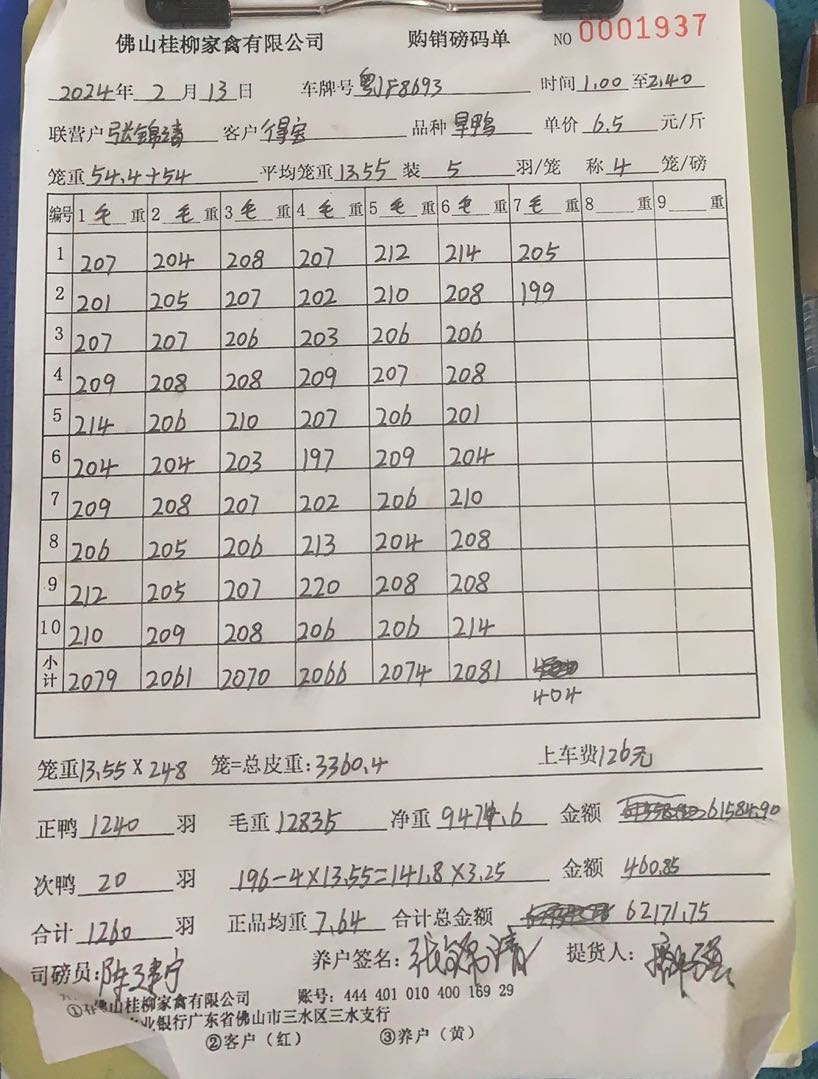 佛山桂柳家禽有限公司 购销磅码单 NO 0001937
2024年 2 月 13 日 车牌号 粤JF8693 时间 1.00 至 2.40
联营户 张锦清 客户 得宝 品种 旱鸭 单价 6.5 元/斤
笼重 54.4+54 平均笼重 13.55 装 5 羽/笼 称 4 笼/磅
编号 1 毛 重 2 毛 重 3 毛 重 4 毛 重 5 毛 重 6 毛 重 7 毛 重 8 重 9 重
1 207 204 208 207 212 214 205
2 201 205 207 202 210 208 199
3 207 207 206 203 206 206
4 209 208 208 209 207 208
5 214 206 210 207 206 201
6 204 204 203 197 209 204
7 209 208 207 202 206 210
8 206 205 206 213 204 208
9 212 205 207 220 208 208
10 210 209 208 206 206 214
小计 2079 2061 2070 2066 2074 2081
404
笼重13.55 X 248 笼=总皮重:3360.4 上车费126元
正鸭 1240 羽 毛重 12835 净重 9474.6 金额 61584.90
次鸭 20 羽 196-4X13.55=141.8X3.25 金额 460.85
合计 1260 羽 正品均重 7.64 合计总金额 62171.75
司磅员: 陈 宁 养户签名: 张锦清 提货人:
佛山桂柳家禽有限公司 账号: 444 401 010 400 169 29
业银行广东省佛山市三水区三水支行
②客户（红） ③养户（黄）